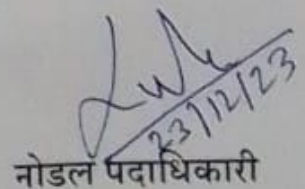 23/12/23
नोडल पदाधिकारी